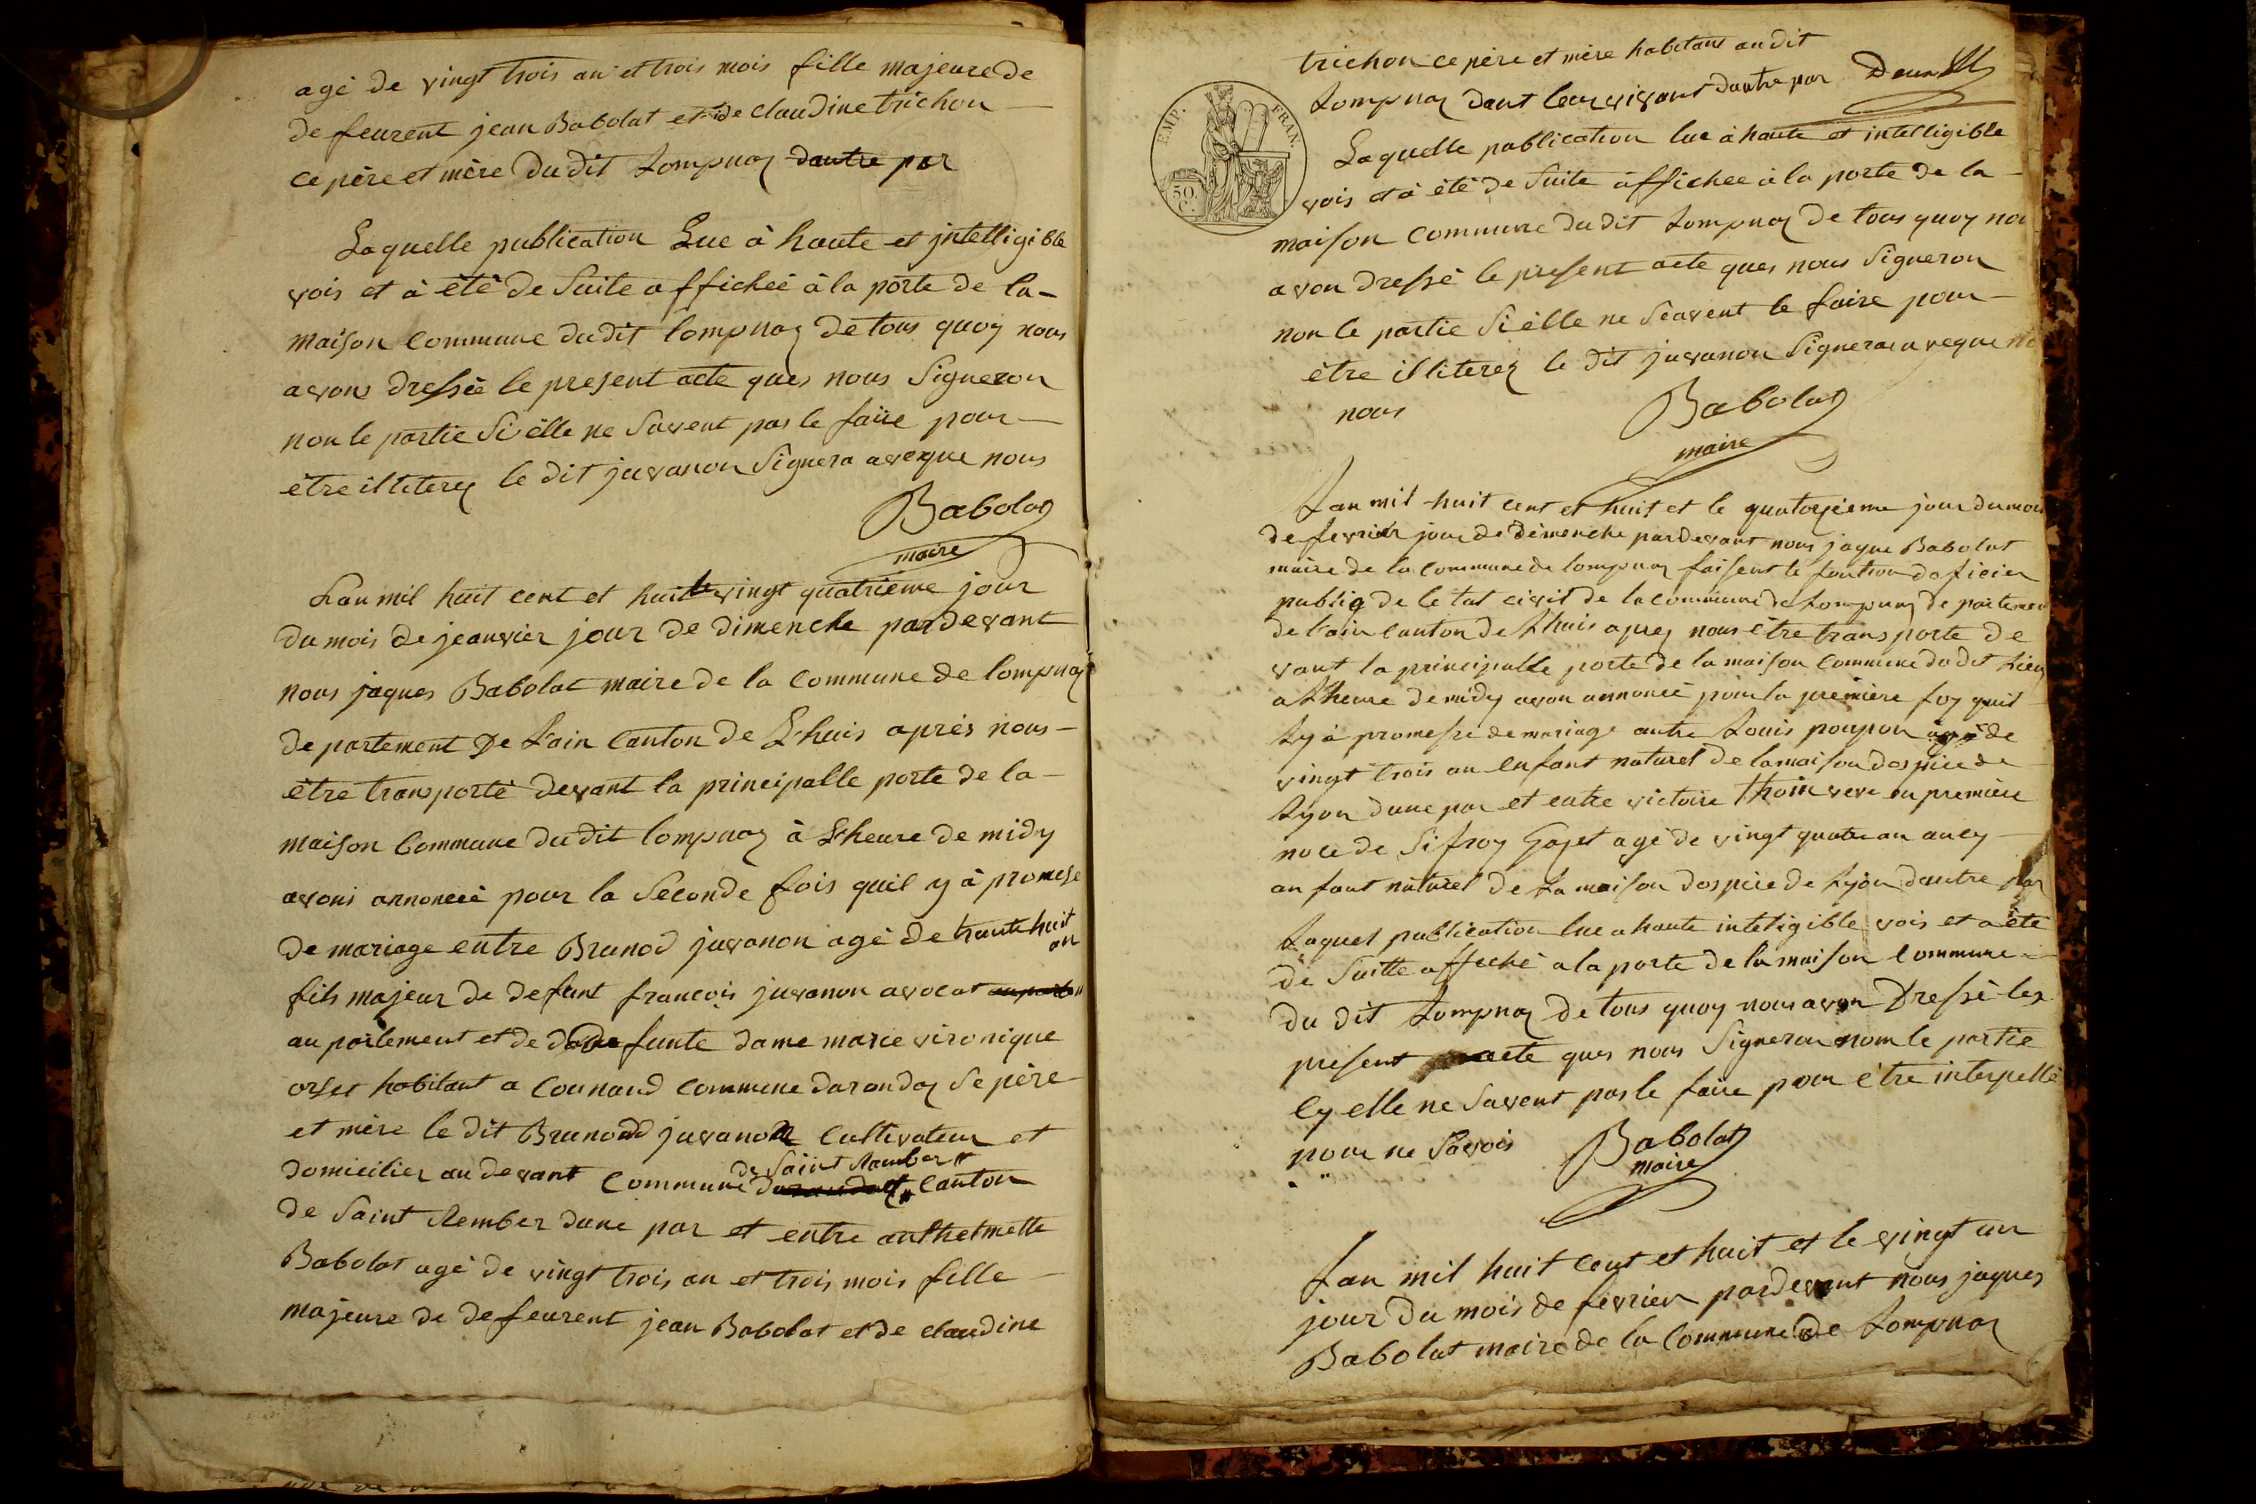 agé de vingt trois an et trois mois fille majeure de
defeurent jean Babolat et de claudine trichon
ce père et mère du dit Lompnaz dautre par
Laquelle publication Lue à haute et jntelligible
vois et à été de Suite affichéé à la porte de la
maison Commune dudit lompnaz de tous quoy nous
avons dressée le present acte ques nous Signeron
non le partie Si elle ne Savent pas le faire pour
être illiterez le dit juvanon Signera aveque nous
Babolat
maire
Lan mil huit cent et huit le vingt quatrième jour
du mois de jeanvier jour de dimenche pardevant
nous jaques Babolat maire de la Commune de lompnaz
departement De Lain Canton de Lhuis après nous
être transporté devant la principalle porte de la
maison Commune dudit lompnaz à Lheure de midy
avons annonceé pour la Seconde fois quil y à promese
de mariage entre Brunod juvanon agé de trante huit
an
fils majeur de defunt francois juvanon avocat
au parlement et de defunte dame marie vironique
orset habitant a Counand Commune darandaz Se père
et mère le dit Brunod juvanon Cultivateur et
de Saint Ramber
domicilier au devant Commune Canton
de Saint Rember dune par et entre anthelmette
Babolat agé de vingt trois an et trois mois fille
majeure de defeurent jean Babolat et de claudine
trichon ce père et mère habitant au dit
Lompnaz dant leur vivant dautre par
EMP. FRAN.
50 C.
Laquelle publication lue à haute et intelligible
vois et à été de Suite affichee à la porte de la
maison Commune dudit Lompnaz de tous quoy nou
avon dressé le present acte ques nous Signeron
non le partie Si elle ne Scavent le faire pour
être illiterez le dit juvanon Signera aveque
nous
Babolat
maire
Lan mil huit cent et huit et le quatorzieme jour du mois
de fevrier jour de dimenche pardevant nous jaque Babolat
maire de la Commune de lompnaz faisent le fontion doficier
publiq de le tat civil de la commune de Lompnaz departemen
de lain Canton de Lhuis aprez nous être transporte de
vant la principalle porte de la maison Commune du dit Lieu
a Lheure de midy avon annoncé pour la première foy quil
Ly à promesse de mariage antre Louis poupon agé de
vingt trois an enfant naturel de la maison dospice de
Lyon dune par et entre victoire Thoin veve en première
noce de Sifroy Gojet agé de vingt quatre an aucy
anfant naturel de La maison dospice de Lyon dautre par
Laquel publication lue a haute inteligible vois et a été
de Suitte affiché a la porte de la maison Commune
du dit Lompnaz de tous quoy nous avon Dressé les
present acte ques nous Signeron nom le partie
Cy elle ne Savent pas le faire pour être interpellé
pour ne Savois
Babolat
maire
Lan mil huit cent et huit et le vingt un
jour du mois de fevrier pardevent nous jaques
Babolat maire de la Commune de Lompnaz